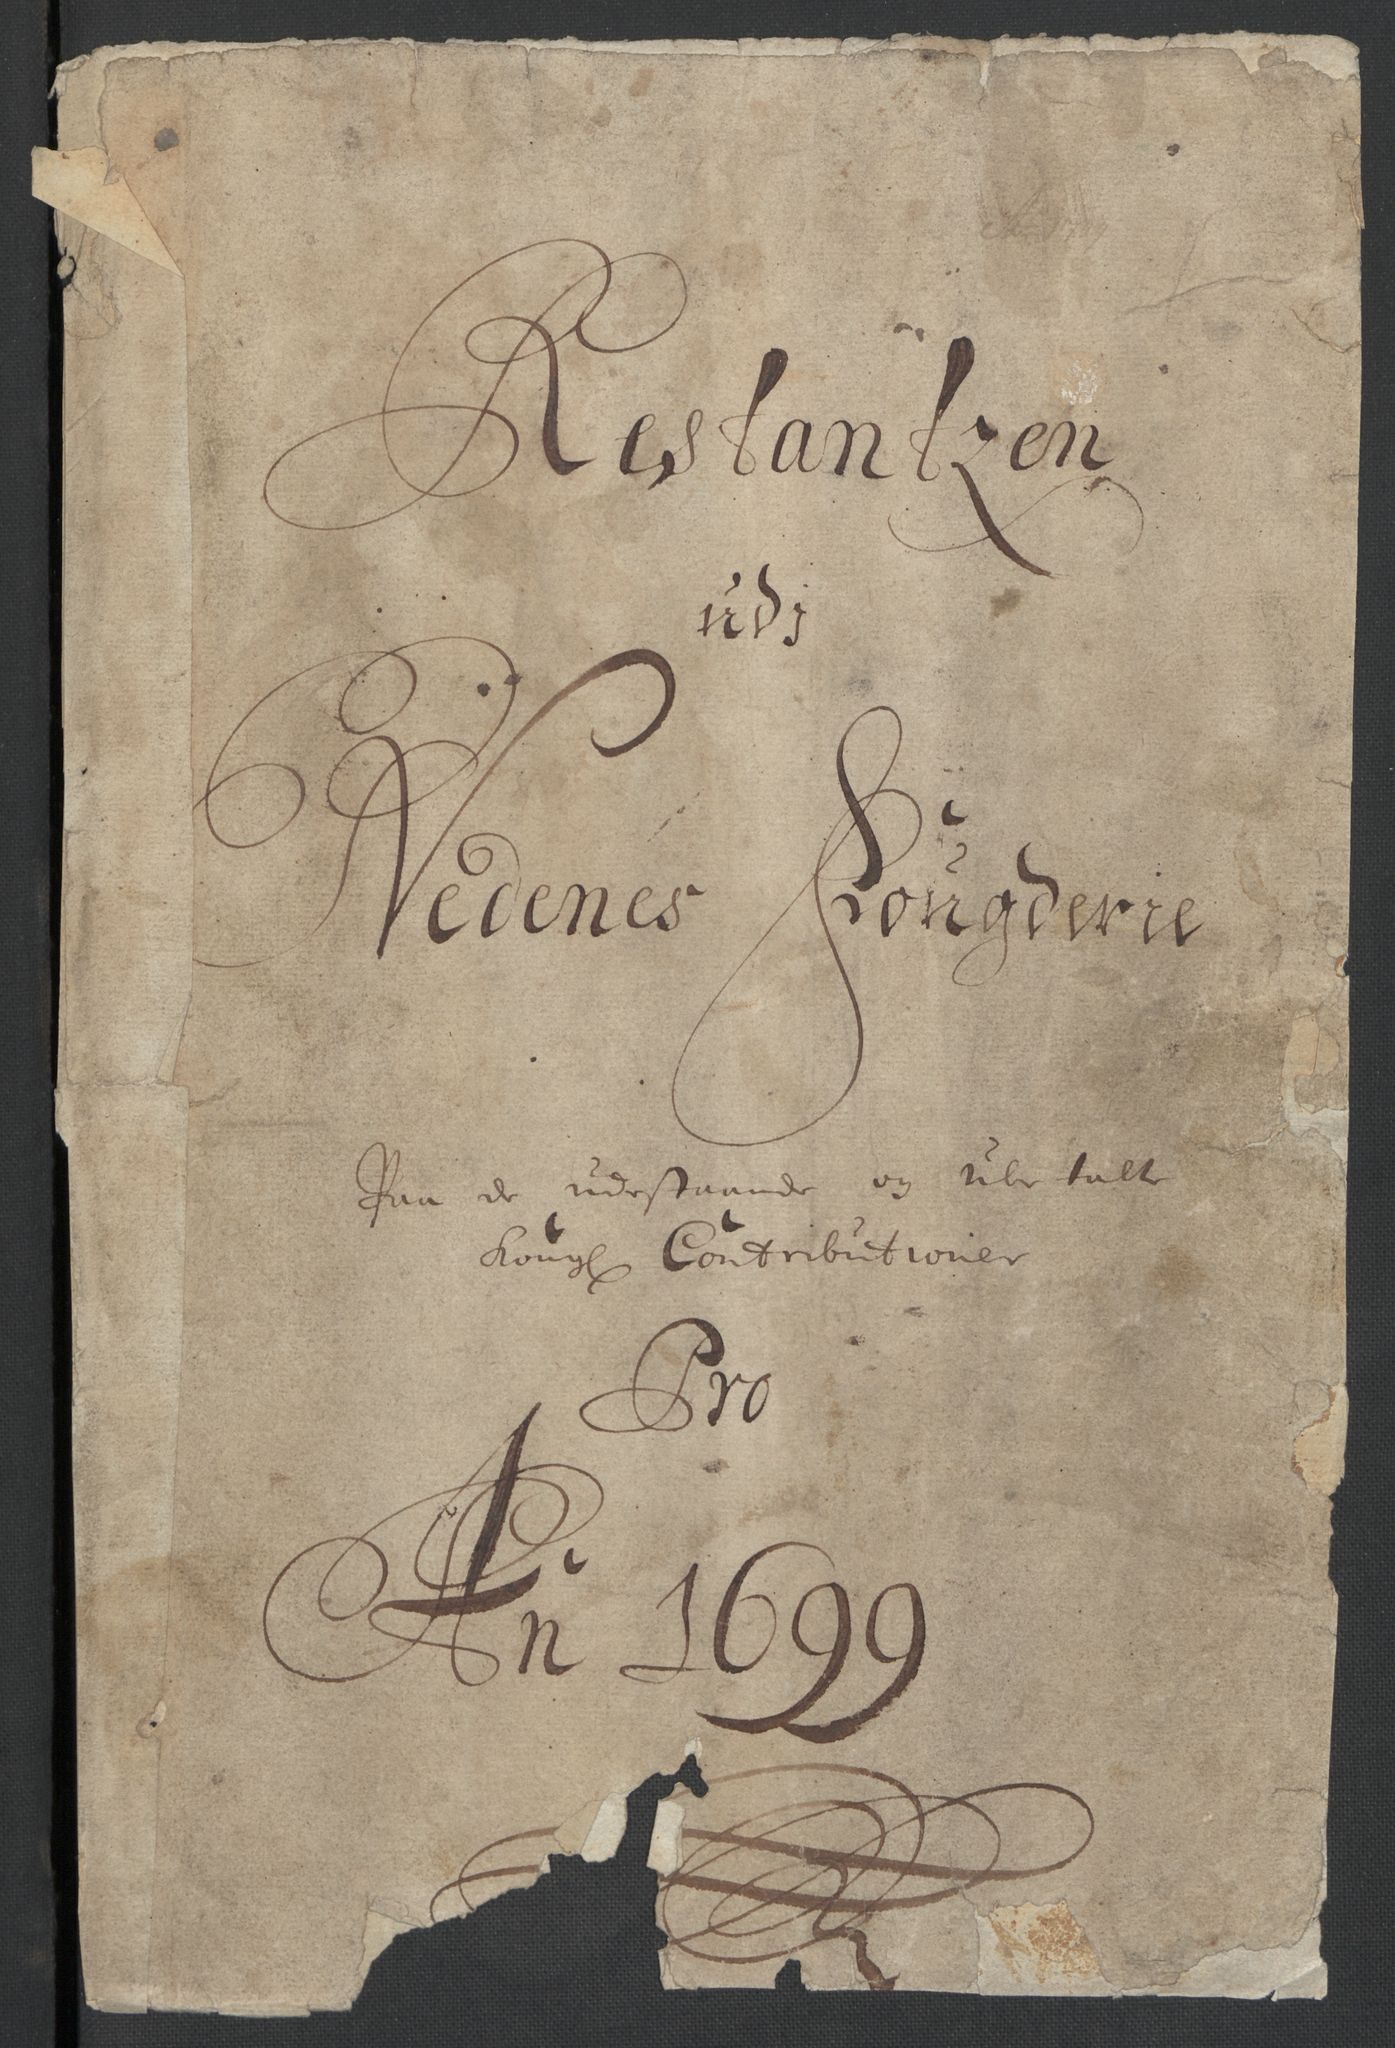 Restantzen
udj
Nedenes Fougderie
Paa de udestaande og ube talte
Kongl Contributioner
Pro
An 1699